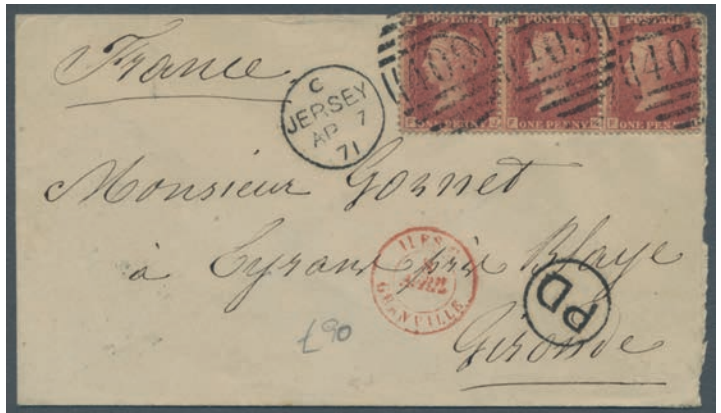 France
C
JERSEY
AP 7
71
POSTAGE POSTAGE POSTAGE
409 409 409
ONE PENNY ONE PENNY ONE PENNY
Monsieur Gornet
à Eyrans près Blaye
Gironde
ILES C
AVRIL
GRANVILLE
PD
£90